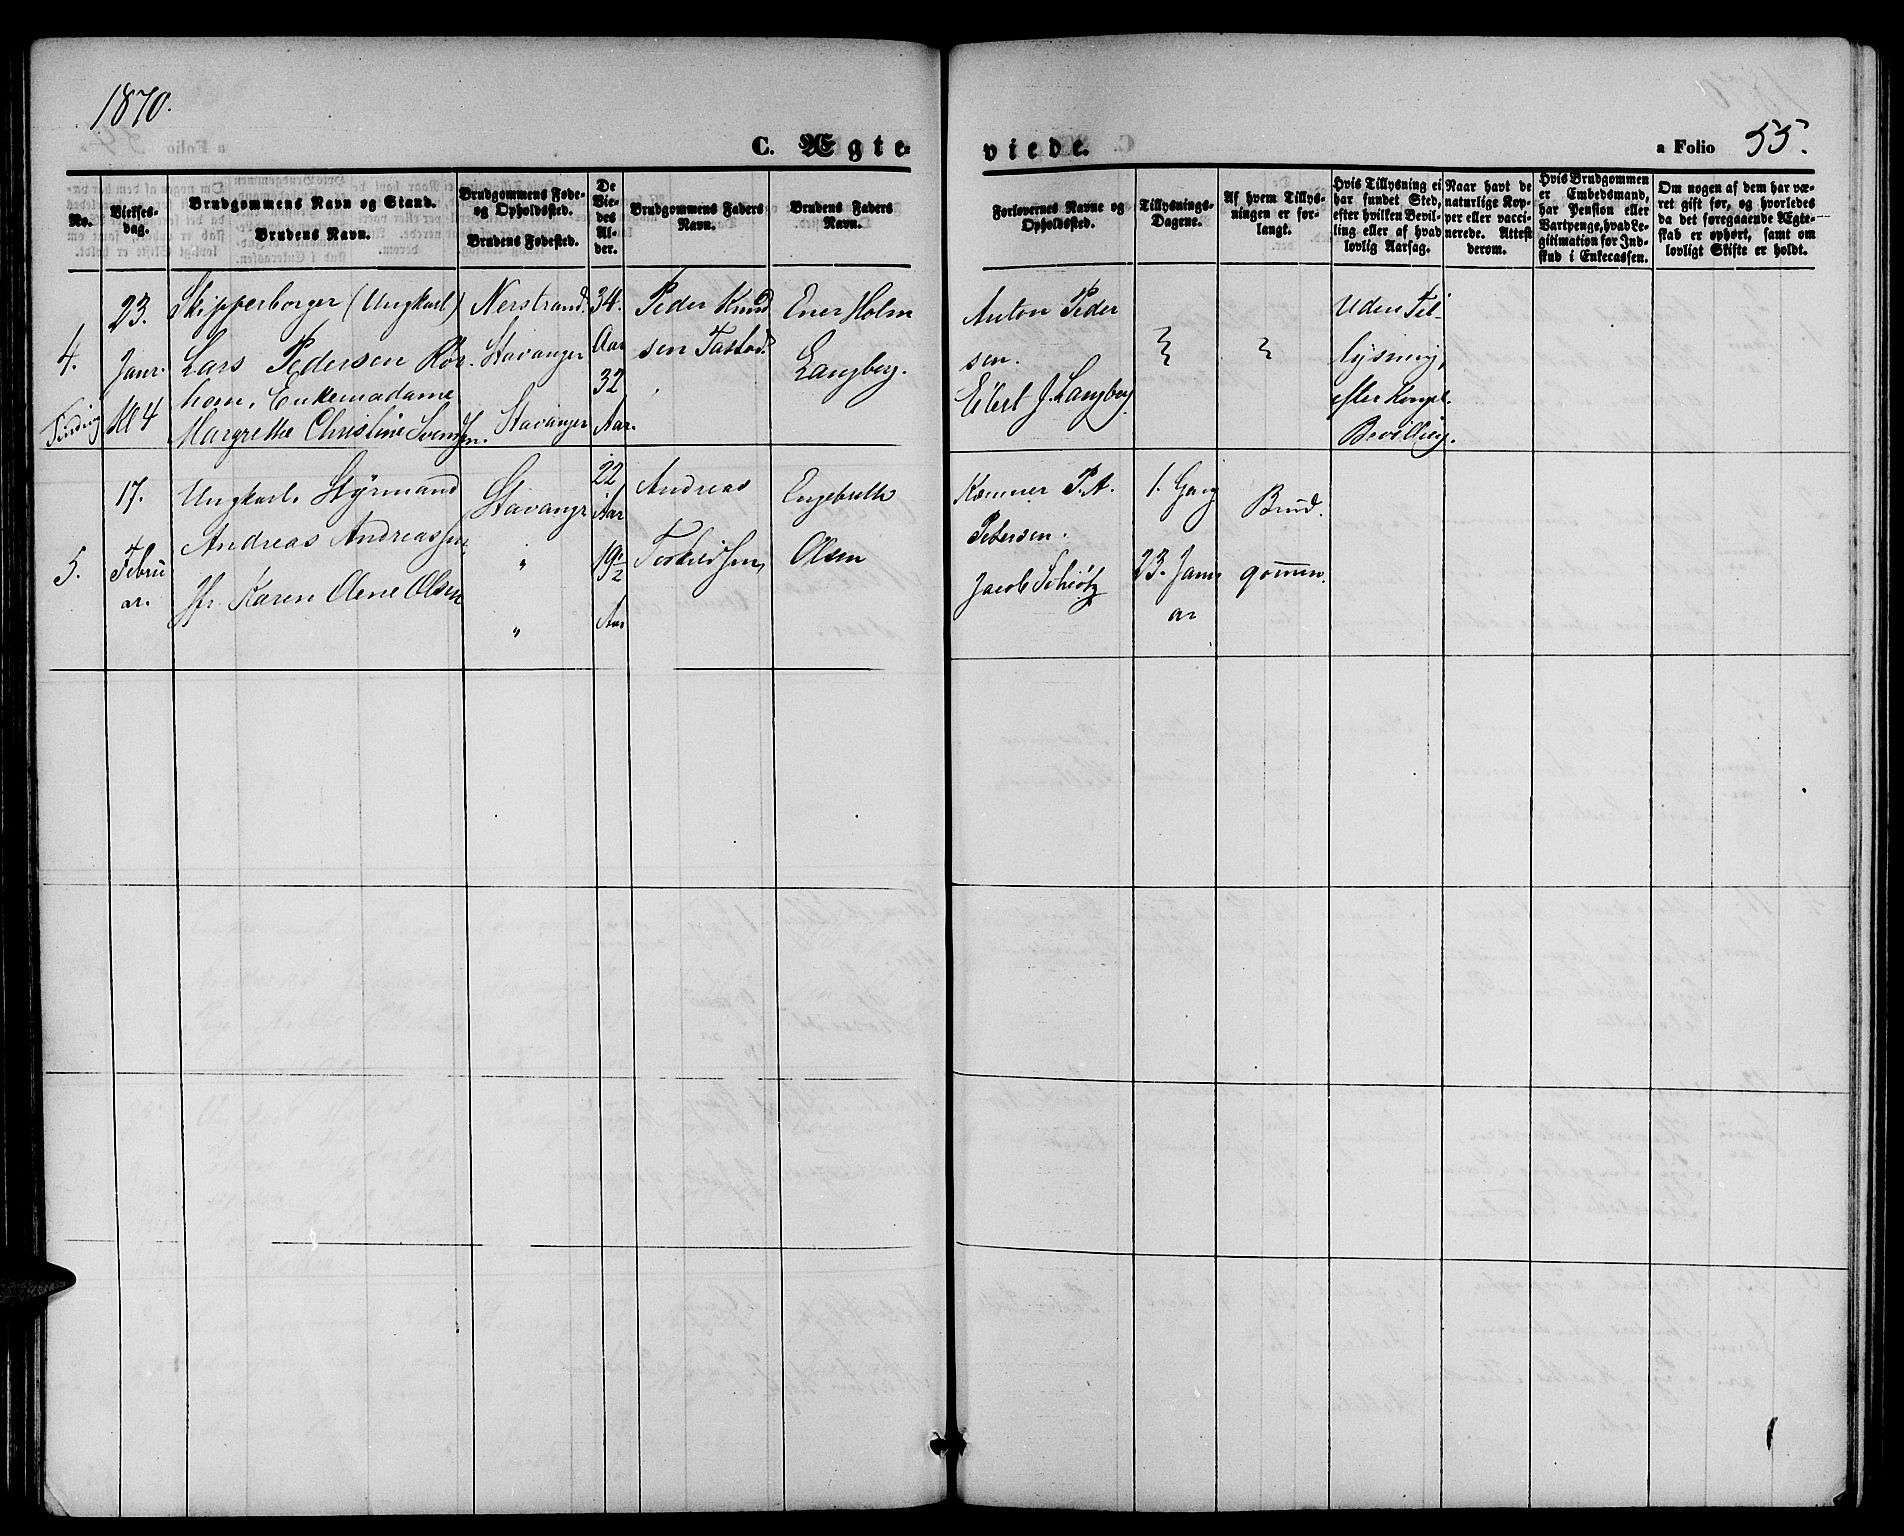 1870.
C. Ægte-
viede.
a Folio 55.
No.
Vielses-
dag.
Brudgommens Navn og Stand.
Brudens Navn.
Brudgommens Føde-
og Opholdssted.
Brudens Fødested.
De
Vie-
des
Al-
der.
Brudgommens Faders
Navn.
Brudens Faders
Navn.
Forlovernes Navne og
Opholdssted.
Tillysnings-
Dagene.
Af hvem Tillys-
ningen er for-
langt.
Hvis Tillysning ei
har fundet Sted,
efter hvilken Bevil-
ling eller af hvad
lovlig Aarsag.
Naar havt de
naturlige Kop-
per eller vacci-
nerede. Attest
derom.
Hvis Brudgommen
er Embedsmand,
har Pension eller
Vartpenge, hvad Le-
gitimation for Ind-
skud i Enkecassen.
Om nogen af dem har væ-
ret gift før, og hvorledes
da det foregaaende Ægte-
skab er ophørt, samt om
lovligt Skifte er holdt.
4.
23.
Janr.
Kl 4
Skipperborger (Ungkarl)
Lars Pedersen Rør-
hom, Enkemadame
Margrethe Christine Svendsen.
Nerstrand.
Stavanger
Stavanger
34.
Aar
32
Aar.
Peder Knud
sen Tastad.
Ener Holm
Langberg.
Anton Peder
sen.
Eilert J. Langberg
Uden Til-
lysning,
efter Kongel.
Bevilling.
5.
17.
Febru
ar.
Ungkarl Styrmand
Andreas Andreassen
Jfr. Karen Olene Olsen
Stavangr
"
"
22
Aar
19 1/2
Aar
Andreas
Torkildsen
Engebreth
Olsen
Kæmner P. A.
Petersen.
Jacob Schiøtz
1. Gang
23. Janu
ar
Brud
gommen.